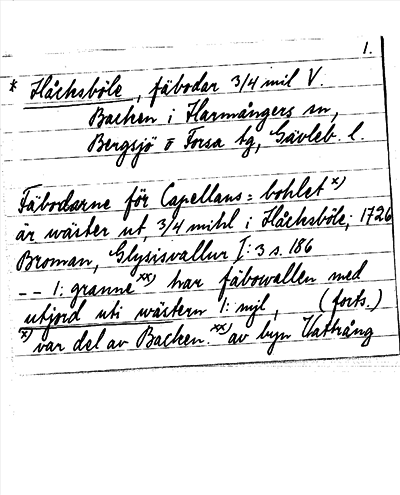 1.
* Håcksböle, fäbodar 3/4 mil V.
Backen i Harmångers sn,
Bergsjö o Forsa tg, Gävleb. l.
Fäbodarne för Capellans = bohlet x)
är wäster ut, 3/4 mihl i Håcksböle; 1726
Broman, Glysisvallur I: 3 s. 186
-- 1: granne xx) har fäbowallen med
utjord uti wästern 1: mjl, (forts.)
x) var del av Backen. xx) av byn Vattrång